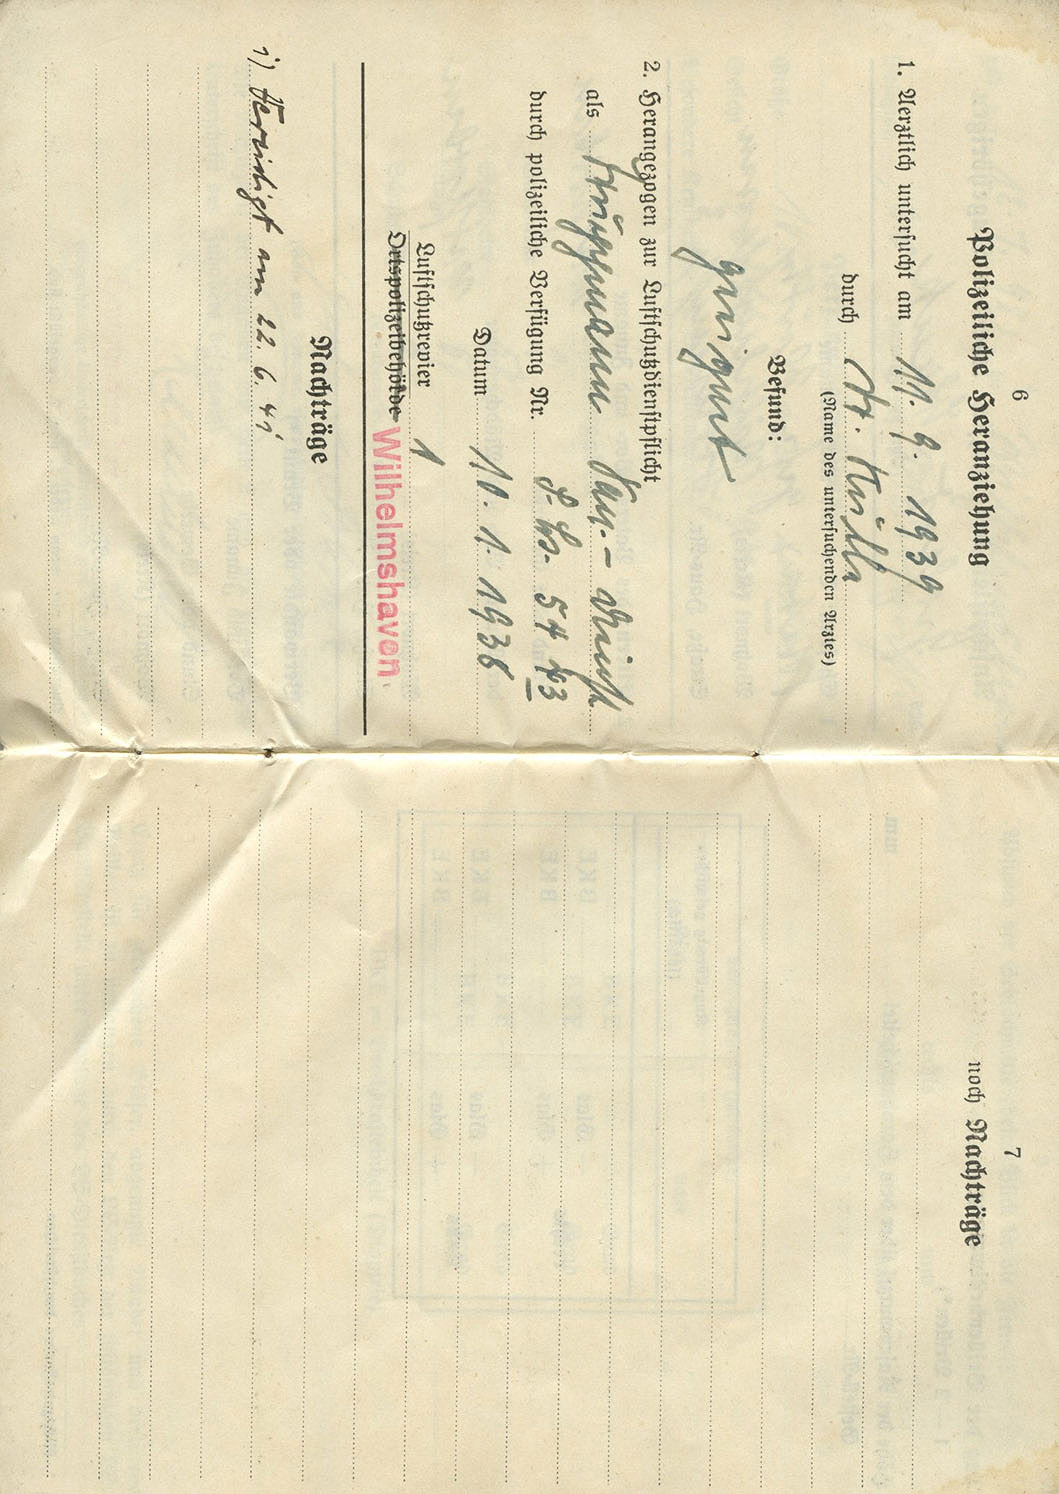 6
Polizeiliche Heranziehung
1. Aerztlich untersucht am 11. 9. 1939
durch Dr.
(Name des untersuchenden Arztes)
Befund:
geeignet
2. Herangezogen zur Luftschutzdienstpflicht
als San.-Dienst
durch polizeiliche Verfügung Nr.
Datum 10. 1. 1938
Luftschutzrevier 1
Ortspolizeibehörde Wilhelmshaven
Nachträge
1) Vereidigt am 22. 6. 41
7
noch Nachträge